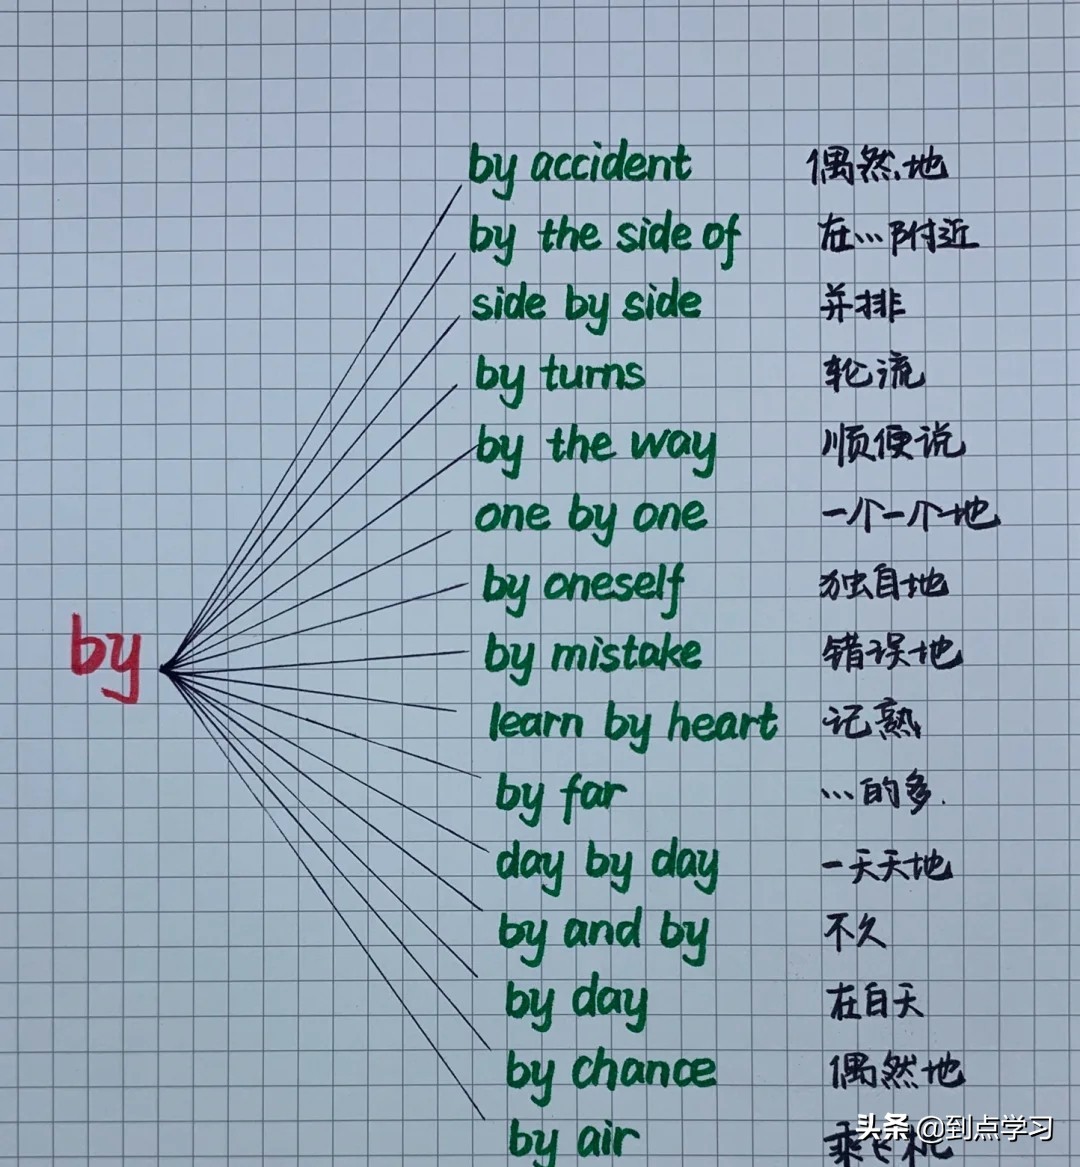 by accident 偶然地
by the side of 在…附近
side by side 并排
by turns 轮流
by the way 顺便说
one by one 一个一个地
by oneself 独自地
by mistake 错误地
by
learn by heart 记熟
by far …的多.
day by day 一天天地
by and by 不久
by day 在白天
by chance 偶然地
by air 乘飞机
头条 @到点学习